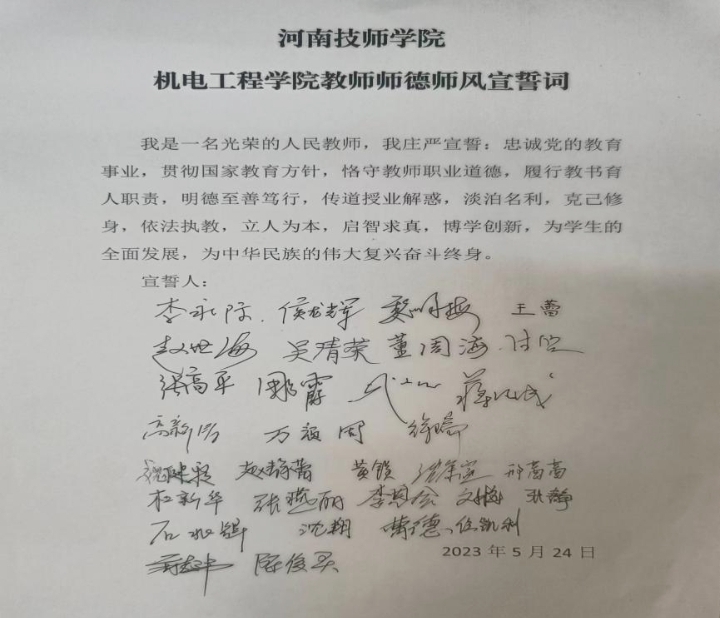 河南技师学院
机电工程学院教师师德师风宣誓词
我是一名光荣的人民教师，我庄严宣誓：忠诚党的教育
事业，贯彻国家教育方针，恪守教师职业道德，履行教书育
人职责，明德至善笃行，传道授业解惑，淡泊名利，克己修
身，依法执教，立人为本，启智求真，博学创新，为学生的
全面发展，为中华民族的伟大复兴奋斗终身。
宣誓人：
李永际 侯龙辉 王蕾
赵世海 吴清荣 董周海 付莹
张高平
高新历
赵静茜 黄锁 邢高高
杜新华 张燕丽 李思会
沈翔 黄德 任凯利
2023 年 5 月 24 日